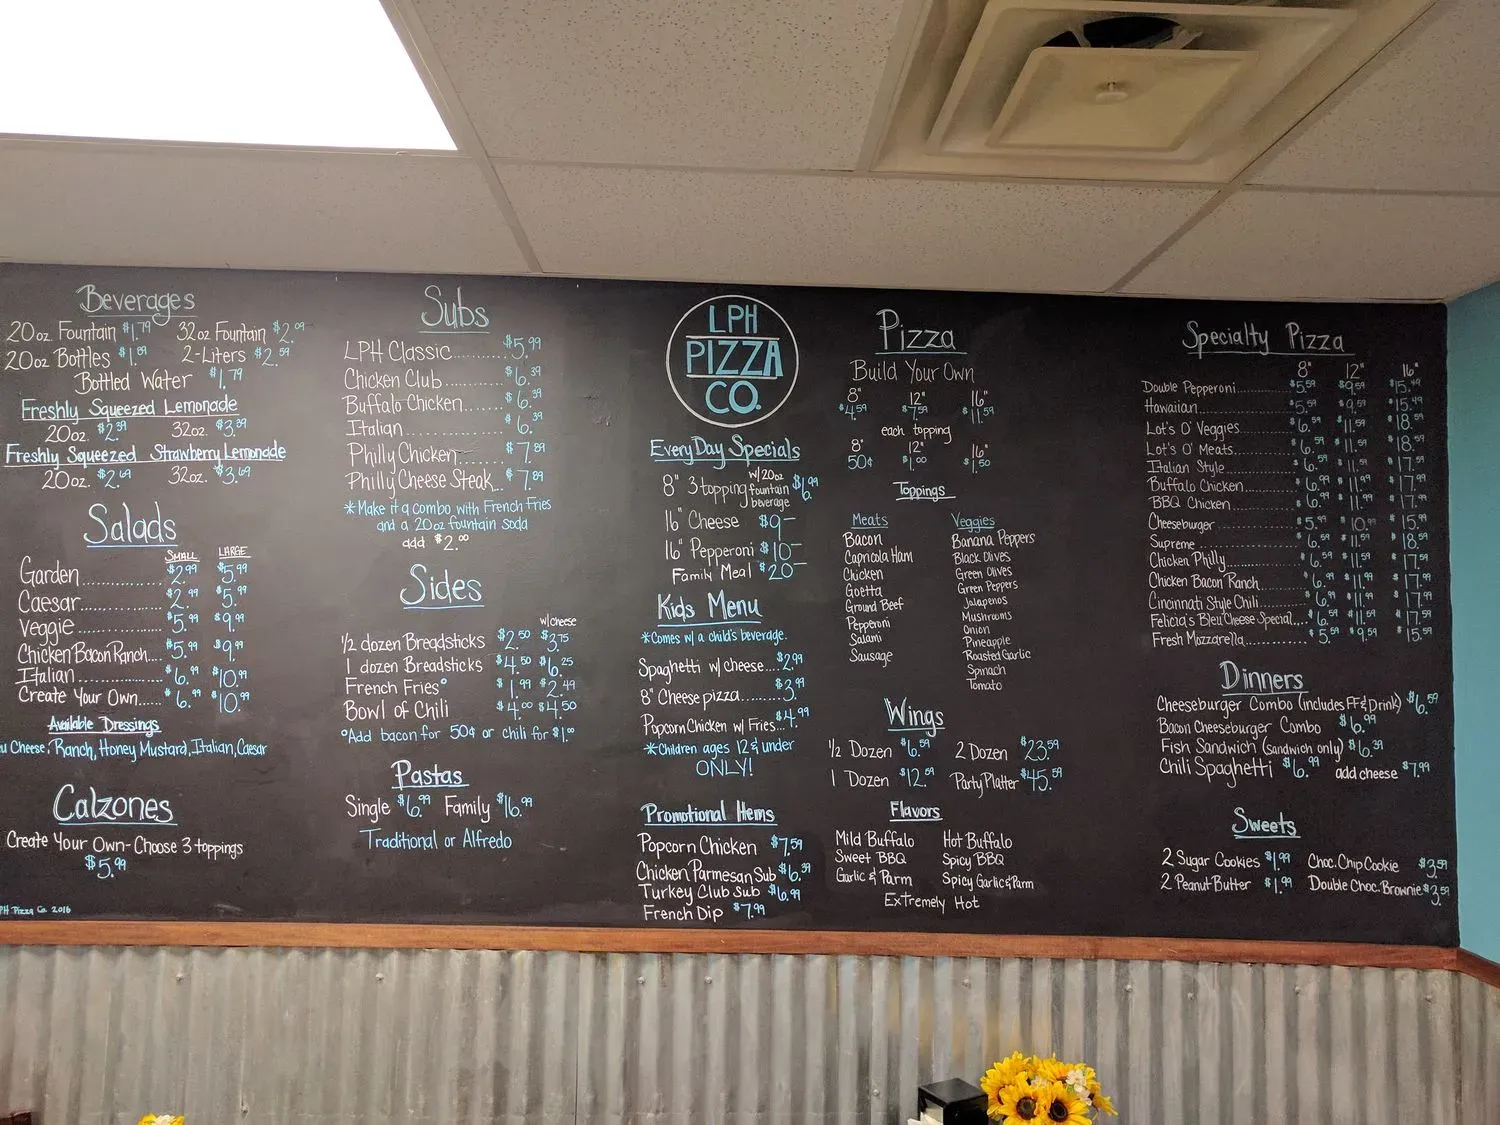 Beverages
20oz Fountain $1.79 32oz Fountain $2.09
20oz Bottles $1.89 2-Liters $2.59
Bottled Water $1.79
Freshly Squeezed Lemonade
20oz. $2.39 32oz. $3.39
Freshly Squeezed Strawberry Lemonade
20oz. $2.69 32oz. $3.69
Salads
SMALL LARGE
Garden $2.99 $5.99
Caesar $2.99 $5.99
Veggie $5.99 $9.99
Chicken Bacon Ranch $5.99 $9.99
Italian $6.99 $10.99
Create Your Own $6.99 $10.99
Available Dressings
Cheese, Ranch, Honey Mustard, Italian, Caesar
Calzones
Create Your Own - Choose 3 toppings
$5.99
PH Pizza Co. 2016
Subs
LPH Classic $5.99
Chicken Club $6.39
Buffalo Chicken $6.39
Italian $6.39
Philly Chicken $7.89
Philly Cheese Steak $7.89
*Make it a combo with French Fries
and a 20oz fountain soda
add $2.00
Sides
w/cheese
1/2 dozen Breadsticks $2.50 $3.75
1 dozen Breadsticks $4.50 $6.25
French Fries° $1.99 $2.49
Bowl of Chili $4.00 $4.50
°Add bacon for 50¢ or chili for $1.00
Pastas
Single $6.99 Family $16.99
Traditional or Alfredo
LPH
PIZZA
CO.
EveryDay Specials
8" 3 topping w/20oz fountain beverage $6.99
16" Cheese $9-
16" Pepperoni $10-
Family Meal $20-
Kids Menu
*Comes w/ a child's beverage.
Spaghetti w/ cheese $2.99
8" Cheese pizza $3.99
Popcorn Chicken w/ Fries $4.99
*Children ages 12 & under
ONLY!
Promotional Items
Popcorn Chicken $7.59
Chicken Parmesan Sub $6.39
Turkey Club Sub $6.99
French Dip $7.99
Pizza
Build Your Own
8" 12" 16"
$4.59 $7.59 $11.59
each topping
8" 12" 16"
50¢ $1.00 $1.50
Toppings
Meats
Bacon
Capricola Ham
Chicken
Goetta
Ground Beef
Pepperoni
Salami
Sausage
Veggies
Banana Peppers
Black Olives
Green Olives
Green Peppers
Jalapenos
Mushrooms
Onion
Pineapple
Roasted Garlic
Spinach
Tomato
Wings
1/2 Dozen $6.59 2 Dozen $23.59
1 Dozen $12.59 Party Platter $45.59
Flavors
Mild Buffalo Hot Buffalo
Sweet BBQ Spicy BBQ
Garlic & Parm Spicy Garlic & Parm
Extremely Hot
Specialty Pizza
8" 12" 16"
Double Pepperoni $5.59 $9.59 $15.99
Hawaiian $5.59 $9.59 $15.99
Lot's O' Veggies $6.59 $11.59 $18.59
Lot's O' Meats $6.59 $11.59 $18.59
Italian Style $6.59 $11.59 $17.59
Buffalo Chicken $6.99 $11.99 $17.99
BBQ Chicken $6.99 $11.99 $17.99
Cheeseburger $5.99 $10.99 $15.99
Supreme $6.59 $11.59 $18.59
Chicken Philly $6.59 $11.59 $17.59
Chicken Bacon Ranch $6.99 $11.99 $17.99
Cincinnati Style Chili $6.99 $11.99 $17.99
Felicia's Bleu Cheese Special $6.59 $11.59 $17.59
Fresh Mozzarella $5.59 $9.59 $15.59
Dinners
Cheeseburger Combo (includes FF & Drink) $6.59
Bacon Cheeseburger Combo $6.99
Fish Sandwich (sandwich only) $6.39
Chili Spaghetti $6.99 add cheese $7.99
Sweets
2 Sugar Cookies $1.99 Choc. Chip Cookie $3.59
2 Peanut Butter $1.99 Double Choc. Brownie $3.59